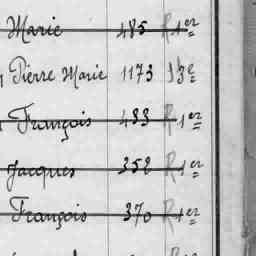 Marie 485 R 1er
Pierre Marie 1173 3e
François 483 R 1er
Jacques 352 R 1er
François 370 R 1er